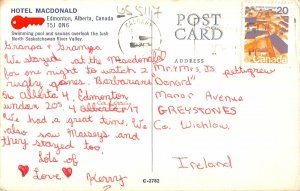 HOTEL MACDONALD
Edmonton, Alberta, Canada
T5J 0N6
Swimming pool and saunas overlook the lush
North Saskatchewan River Valley.
US 5117
POST
CARD
ADDRESS
20
Canada
Granpa & Grannya
We stayed at the Macdonald
for one night to watch 2
rugby games. Barbarians
36 Alberta 4, Edmonton
under 20s 4 Calgary 17
We had a great time. We
also saw Masseys and
they stayed too.
Lots of
Love
Kerry
Mr. & Mrs. JS pettigrew
"Oonard"
Manor Avenue
GREYSTONES
Co. Wicklow
Ireland
C-2782